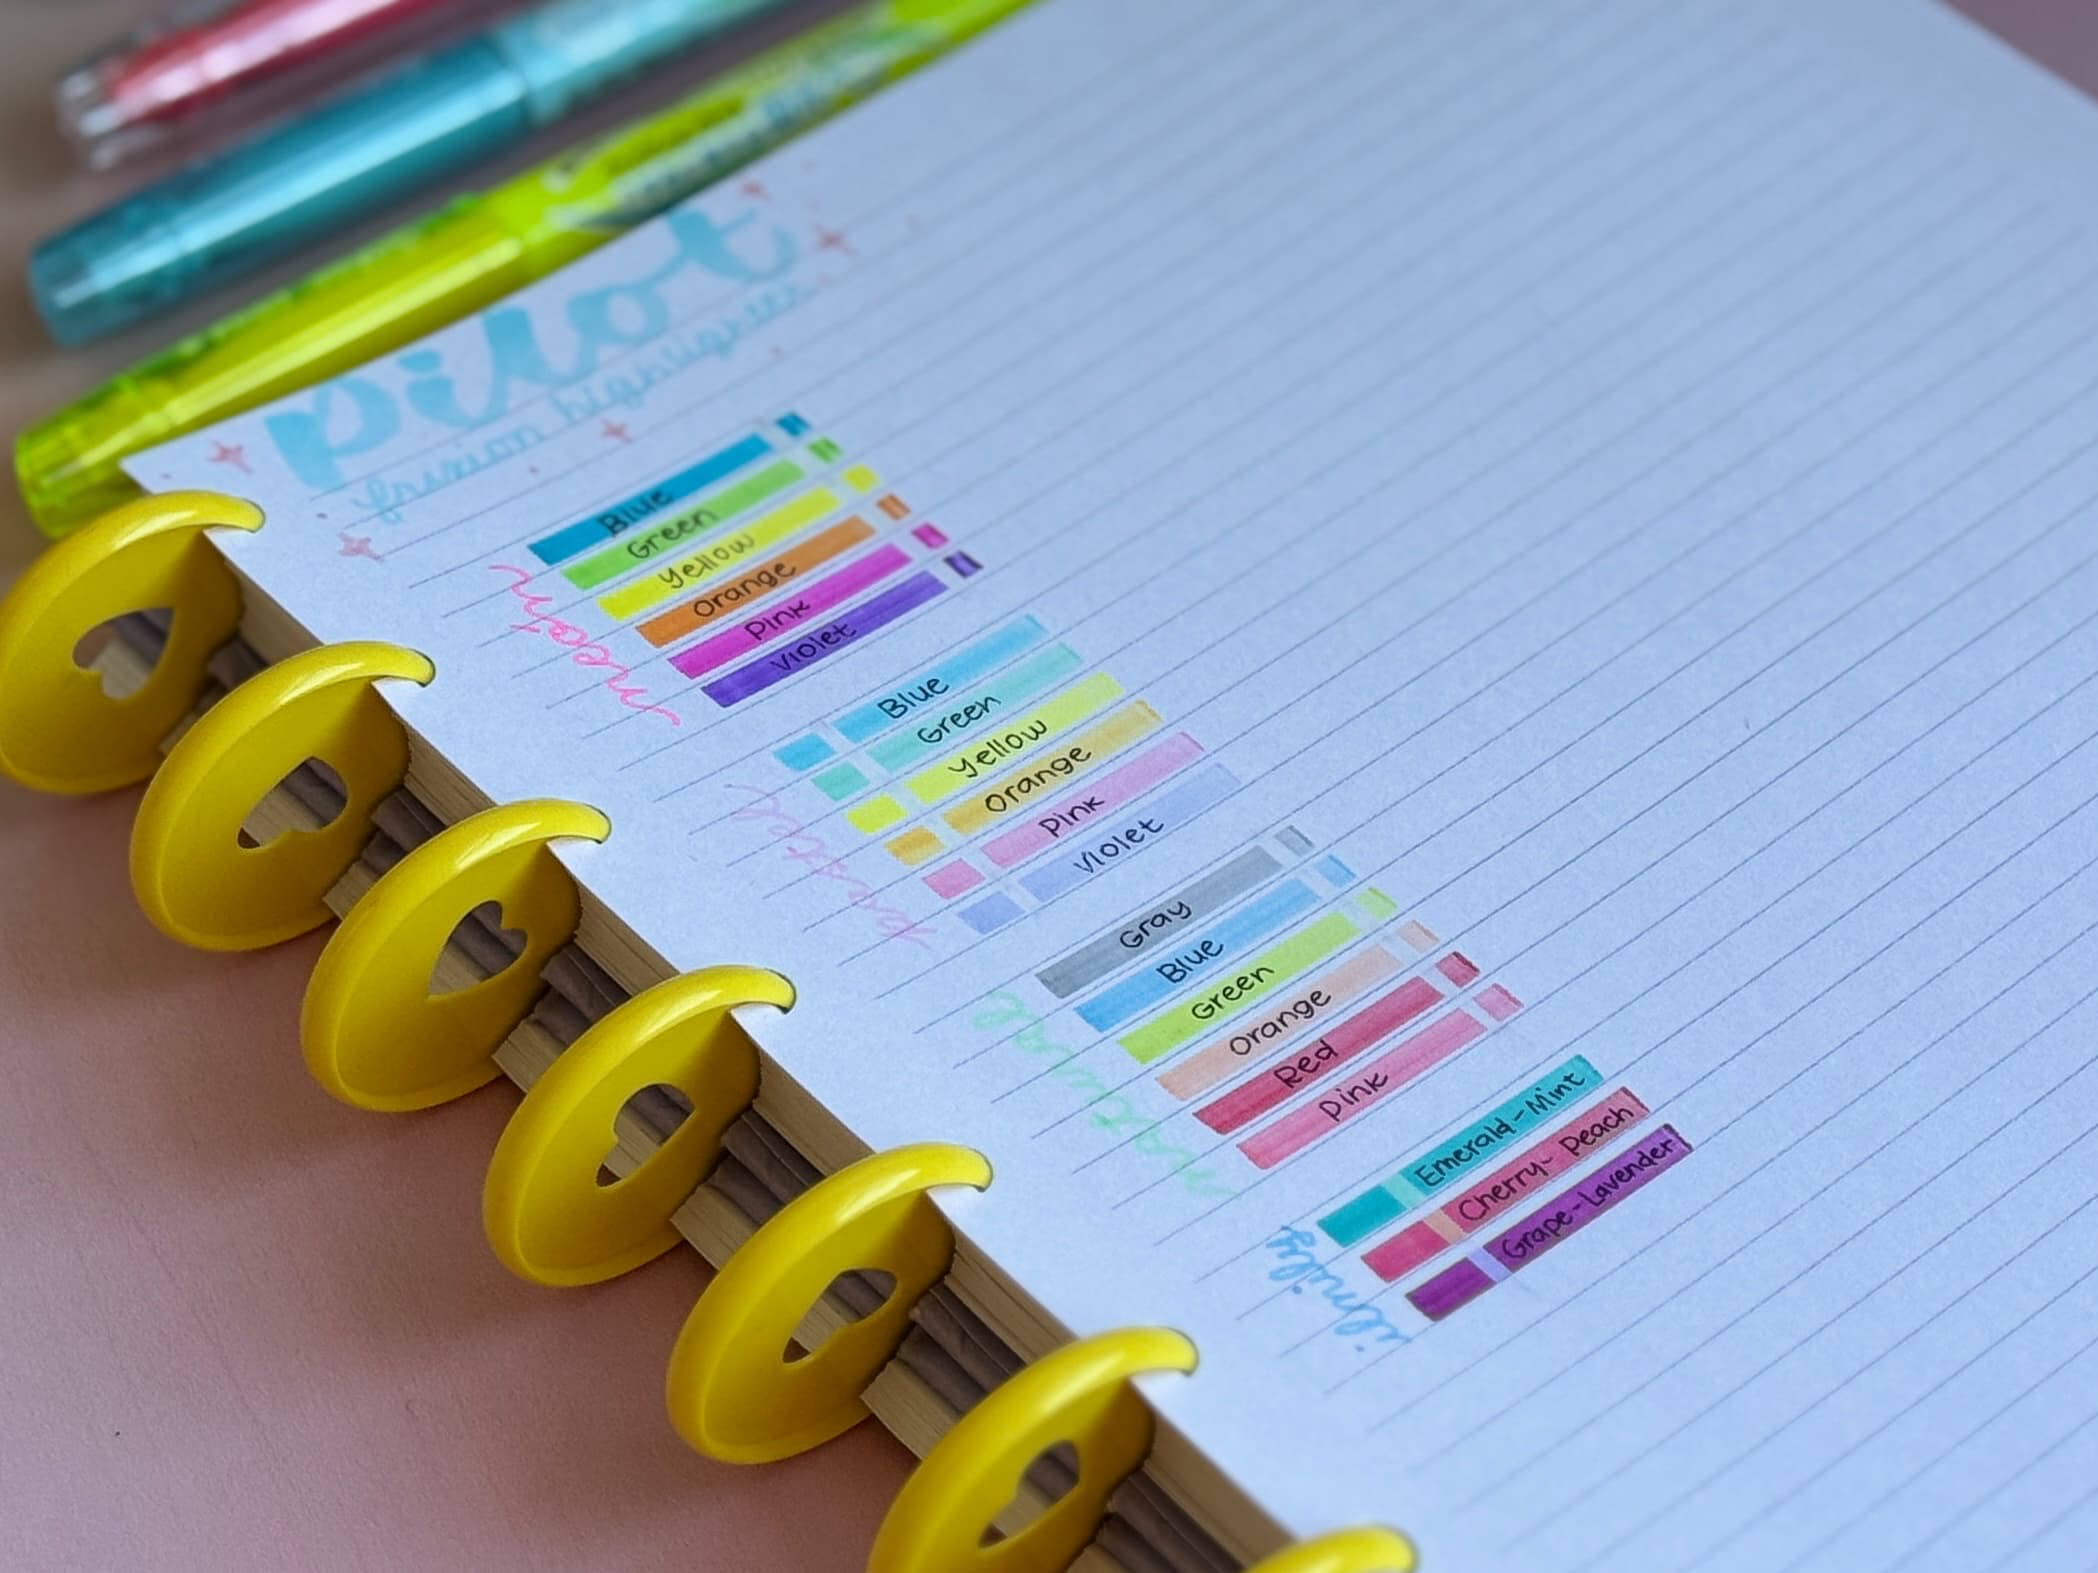 pilot
frixion highlighter
neon
Blue
Green
Yellow
Orange
Pink
Violet
pastel
Blue
Green
Yellow
Orange
Pink
Violet
natural
Gray
Blue
Green
Orange
Red
Pink
ilmily
Emerald-Mint
Cherry-Peach
Grape-Lavender